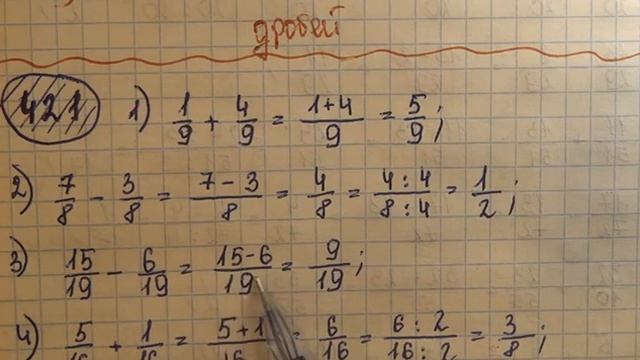 дробей
421 1) 1/9 + 4/9 = (1+4)/9 = 5/9;
2) 7/8 - 3/8 = (7-3)/8 = 4/8 = (4:4)/(8:4) = 1/2;
3) 15/19 - 6/19 = (15-6)/19 = 9/19;
4) 5/16 + 1/16 = (5+1)/16 = 6/16 = (6:2)/(16:2) = 3/8;